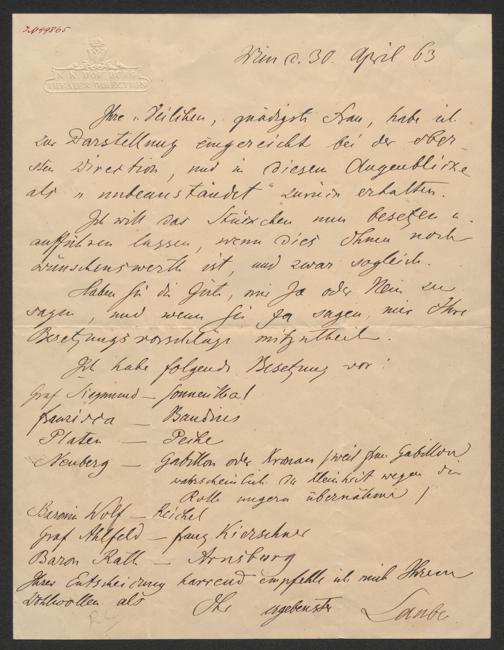 Wien d. 30. April 63
K. K. HOFBURG
THEATER DIRECTION
Ihre "Veilchen", gnädigste Frau, habe ich
zur Darstellung eingereicht bei der ober-
sten Direction, und in diesem Augenblicke
als "unbeanständet" zurück erhalten.
Ich will das Stückchen nun besetzen u.
aufführen lassen, wenn dies Ihnen noch
wünschenswerth ist, und zwar sogleich.
Haben Sie die Güte, mir Ja oder Nein zu
sagen, und wenn Sie Ja sagen, mir Ihre
Besetzungsvorschläge mitzutheilen.
Ich habe folgende Besetzung vor:
Graf Siegmund — Sonnenthal
Franziska — Baudius
Platen — Peike
Neuberg — Gabillon oder Kronau (weil Hrn Gabillon
wahrscheinlich der Kleinheit wegen die
Rolle ungern übernähme)
Baronin Wolf — Reichel
Graf Ahlfeld — Franz Kierschner
Baron Rath — Arnsburg
Ihrer Entscheidung harrend empfehle ich mich Ihrem
Wohlwollen als Ihr ergebenster Laube